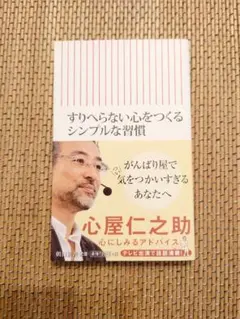 すりへらない心をつくる
シンプルな習慣
がんばり屋で
気をつかいすぎる
あなたへ
心屋仁之助
心にしみるアドバイス
テレビ出演で話題沸騰!